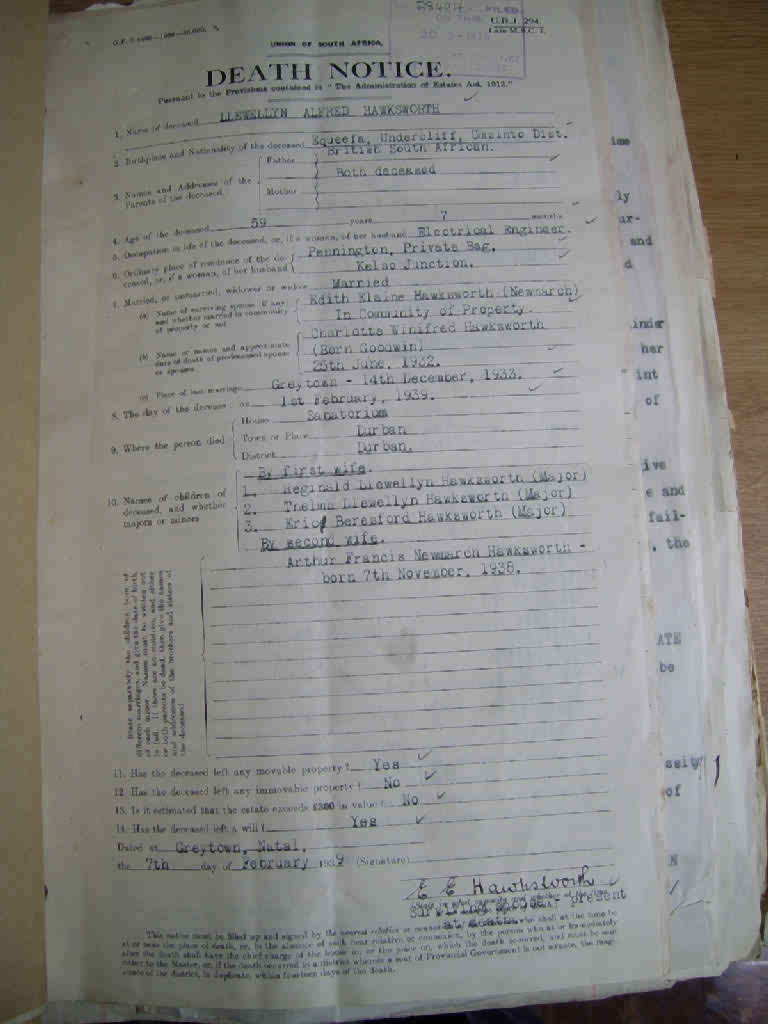 28494
FILED
U.B.J. 294.
UNION OF SOUTH AFRICA.
DEATH NOTICE.
Pursuant to the Provisions contained in "The Administration of Estates Act, 1913."
1. Name of deceased LLEWELLYN ALFRED HAWKSWORTH
2. Birthplace and Nationality of the deceased Equeefa, Undercliff, Umzinto Dist.
British South African.
3. Names and Addresses of the Parents of the deceased
Father
Both deceased
Mother
4. Age of the deceased 59 years 7 months
5. Occupation in life of the deceased, or, if a woman, of her husband Electrical Engineer.
6. Ordinary place of residence of the deceased, or, if a woman, of her husband
Pennington, Private Bag,
Kelso Junction.
7. Married, or unmarried, widower or widow Married
(a) Name of surviving spouse (if any) and whether married in community of property or not
Edith Elaine Hawksworth (Newmarch)
In Community of Property.
(b) Name or names and approximate date of death of predeceased spouse or spouses
Charlotte Winifred Hawksworth
(Born Goodwin)
25th June, 1932.
(c) Place of last marriage Greytown - 14th December, 1933.
8. The day of the decease: on 1st February, 1939.
9. Where the person died
House Sanatorium
Town or Place Durban
District Durban.
10. Names of children of deceased, and whether majors or minors
By first wife.
1. Reginald Llewellyn Hawksworth (Major)
2. Thelma Llewellyn Hawksworth (Major)
3. Eric Beresford Hawksworth (Major)
By second wife.
Arthur Francis Newmarch Hawksworth -
born 7th November, 1938.
State separately the children born of
different marriages, and give the date of birth
of each minor. Names must be written out
in full. If there are no children, and either
or both parents be dead, then give the names
and addresses of the brothers and sisters of
the deceased
11. Has the deceased left any movable property? Yes
12. Has the deceased left any immovable property? No
13. Is it estimated that the estate exceeds £300 in value? No
14. Has the deceased left a will? Yes
Dated at Greytown, Natal,
the 7th day of February 1939 (Signature)
E E Hawksworth
Surviving Spouse - present
at death.
This notice must be filled up and signed by the nearest relative or connexion of the deceased who shall at the time be
at or near the place of death, or, in the absence of such near relative or connexion, by the person who at or immediately
after the death shall have the chief charge of the house in, or the place on, which the death occurred, and must be sent
either to the Master, or, if the death occurred in a district wherein a seat of Provincial Government is not situate, the magistrate of the district, in duplicate, within fourteen days of the death.
ime
ly
ur-
and
d
inder
her
int
of
ive
e and
fail-
, the
ATE
be
ssity
of
N